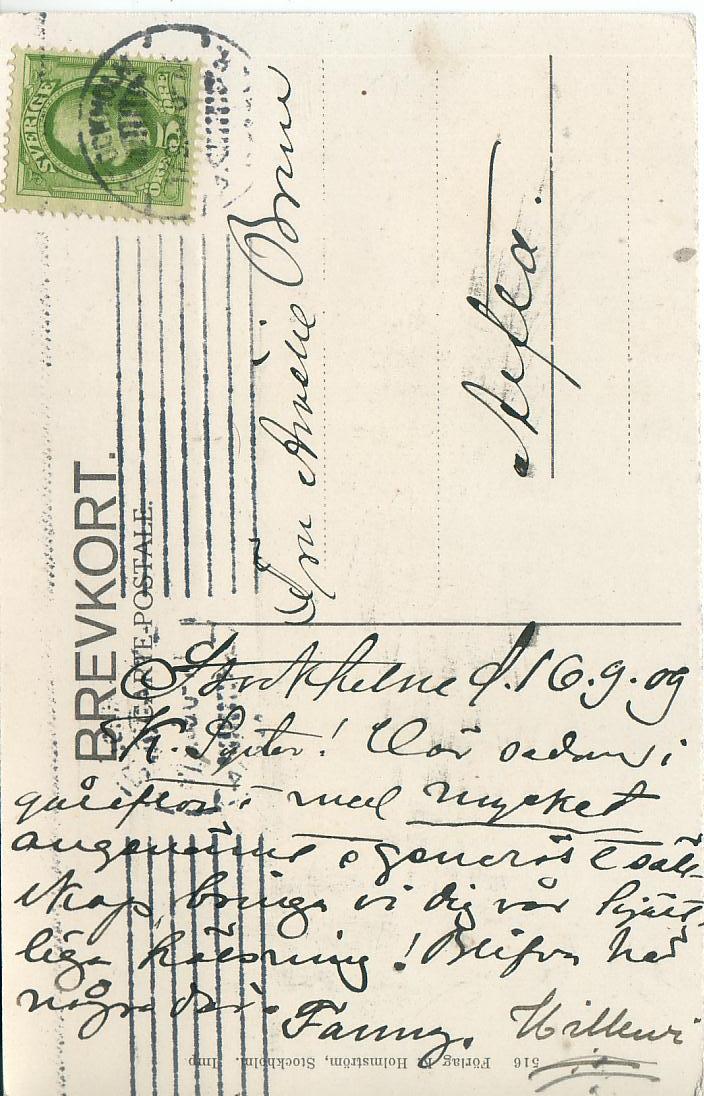 BREVKORT.
CARTE-POSTALE.
SVERIGE
5
ÖRE
Amelie
Stockholm d. 16.9.09
K. Syster! Här sedan i
går afton i med mycket
angenämt o generöst säll-
skap, bringa vi dig vår hjärt-
liga hälsning! Blifva här
några dar.
Fanny.
516 Förlag K. Holmström, Stockholm. Imp